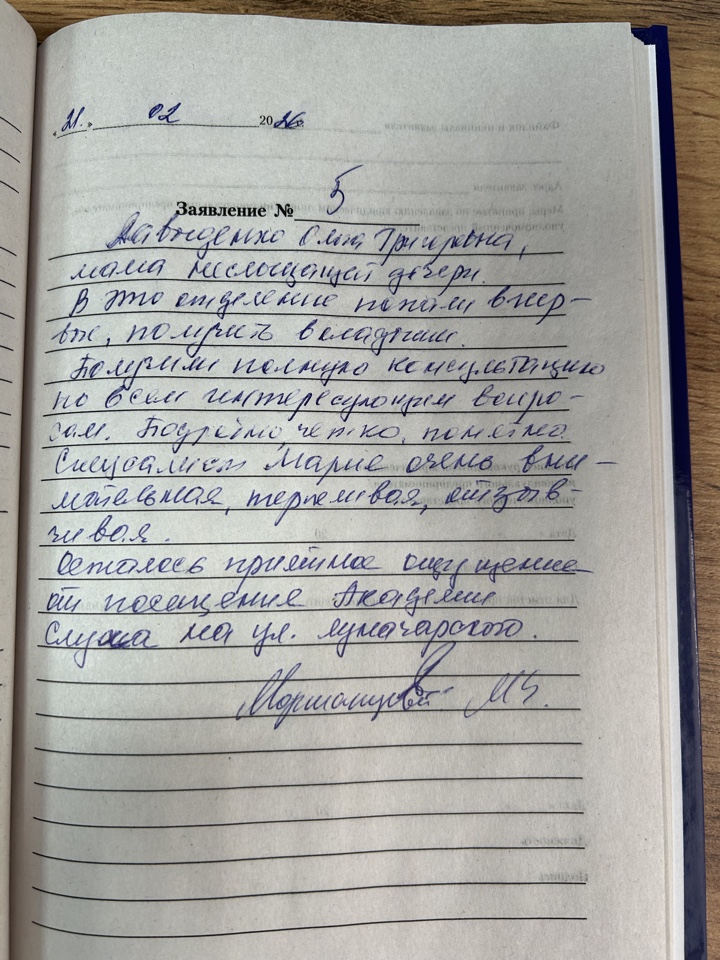 „21.“ 02 2026.
Заявление № 5
Давиденко Ольга Григорьевна,
мама неслышащей дочери.
В это отделение попали впер-
вые, получить вкладыши.
Получили полную консультацию
по всем интересующим вопро-
сам. Подробно, четко, понятно.
Специалист Мария очень вни-
мательная, терпеливая, отзыв-
чивая.
Осталось приятное ощущение
от посещения Академии
Слуха на ул. Луначарского.